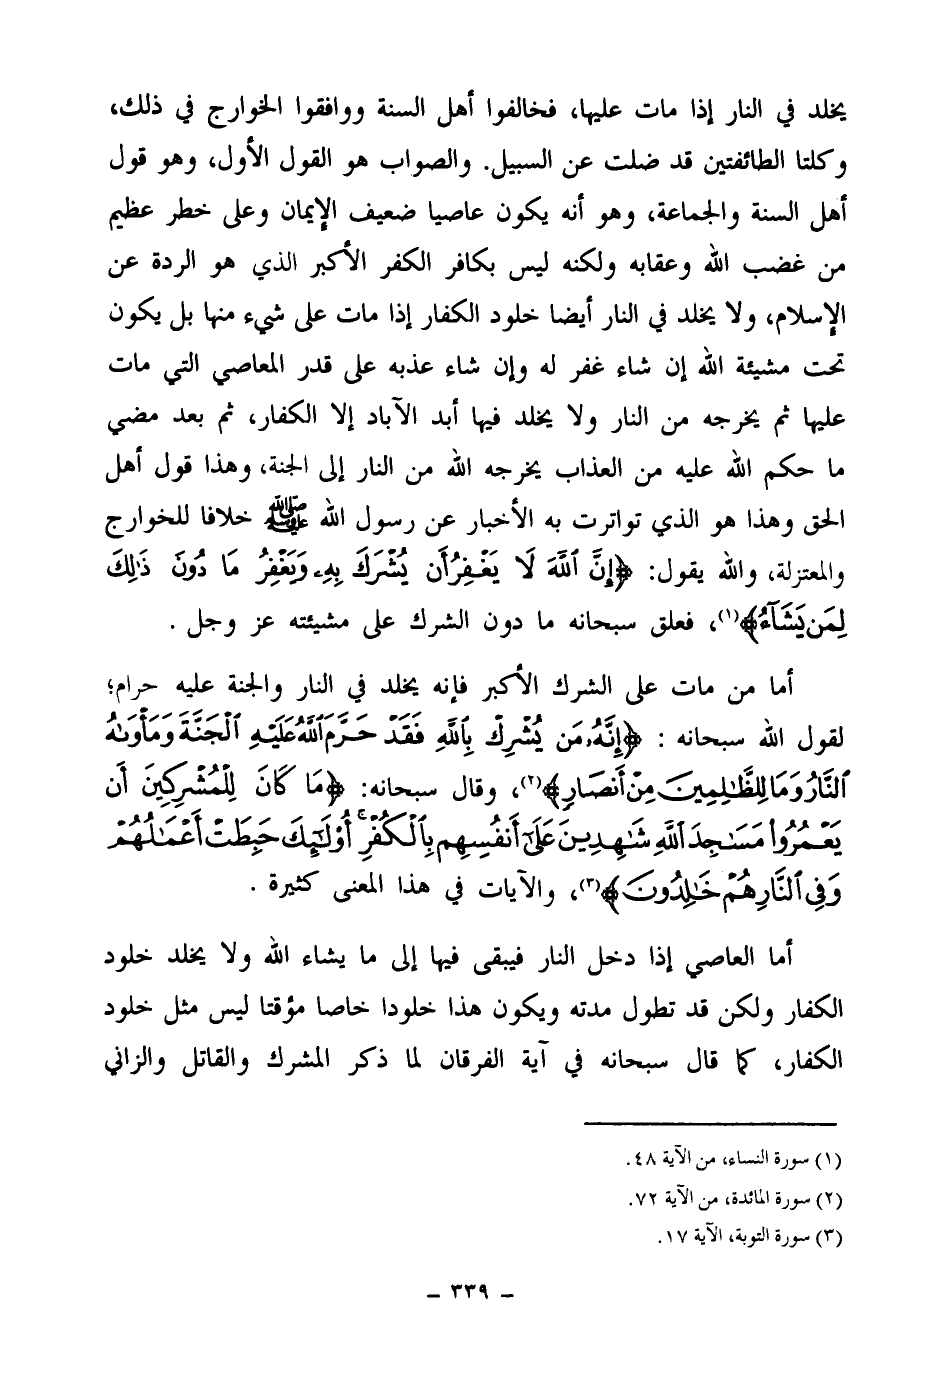 يخلد في النار إذا مات عليها، فخالفوا أهل السنة ووافقوا الخوارج في ذلك،
وكلتا الطائفتين قد ضلت عن السبيل. والصواب هو القول الأول، وهو قول
أهل السنة والجماعة، وهو أنه يكون عاصيا ضعيف الإيمان وعلى خطر عظيم
من غضب الله وعقابه ولكنه ليس بكافر الكفر الأكبر الذي هو الردة عن
الإسلام، ولا يخلد في النار أيضا خلود الكفار إذا مات على شيء منها بل يكون
تحت مشيئة الله إن شاء غفر له وإن شاء عذبه على قدر المعاصي التي مات
عليها ثم يخرجه من النار ولا يخلد فيها أبد الآباد إلا الكفار، ثم بعد مضي
ما حكم الله عليه من العذاب يخرجه الله من النار إلى الجنة، وهذا قول أهل
الحق وهذا هو الذي تواترت به الأخبار عن رسول الله ﷺ خلافا للخوارج
والمعتزلة، والله يقول: ﴿إِنَّ ٱللَّهَ لَا يَغْفِرُ أَن يُشْرَكَ بِهِۦ وَيَغْفِرُ مَا دُونَ ذَٰلِكَ
لِمَن يَشَآءُ﴾(١)، فعلق سبحانه ما دون الشرك على مشيئته عز وجل .
أما من مات على الشرك الأكبر فإنه يخلد في النار والجنة عليه حرام؛
لقول الله سبحانه : ﴿إِنَّهُۥ مَن يُشْرِكْ بِٱللَّهِ فَقَدْ حَرَّمَ ٱللَّهُ عَلَيْهِ ٱلْجَنَّةَ وَمَأْوَىٰهُ
ٱلنَّارُ وَمَا لِلظَّٰلِمِينَ مِنْ أَنصَارٍ﴾(٢)، وقال سبحانه: ﴿مَا كَانَ لِلْمُشْرِكِينَ أَن
يَعْمُرُوا۟ مَسَٰجِدَ ٱللَّهِ شَٰهِدِينَ عَلَىٰٓ أَنفُسِهِم بِٱلْكُفْرِ ۚ أُو۟لَٰٓئِكَ حَبِطَتْ أَعْمَٰلُهُمْ
وَفِى ٱلنَّارِ هُمْ خَٰلِدُونَ﴾(٣)، والآيات في هذا المعنى كثيرة .
أما العاصي إذا دخل النار فيبقى فيها إلى ما يشاء الله ولا يخلد خلود
الكفار ولكن قد تطول مدته ويكون هذا خلودا خاصا مؤقتا ليس مثل خلود
الكفار، كما قال سبحانه في آية الفرقان لما ذكر المشرك والقاتل والزاني
(١) سورة النساء، من الآية ٤٨.
(٢) سورة المائدة، من الآية ٧٢.
(٣) سورة التوبة، الآية ١٧.
– ٣٣٩ –